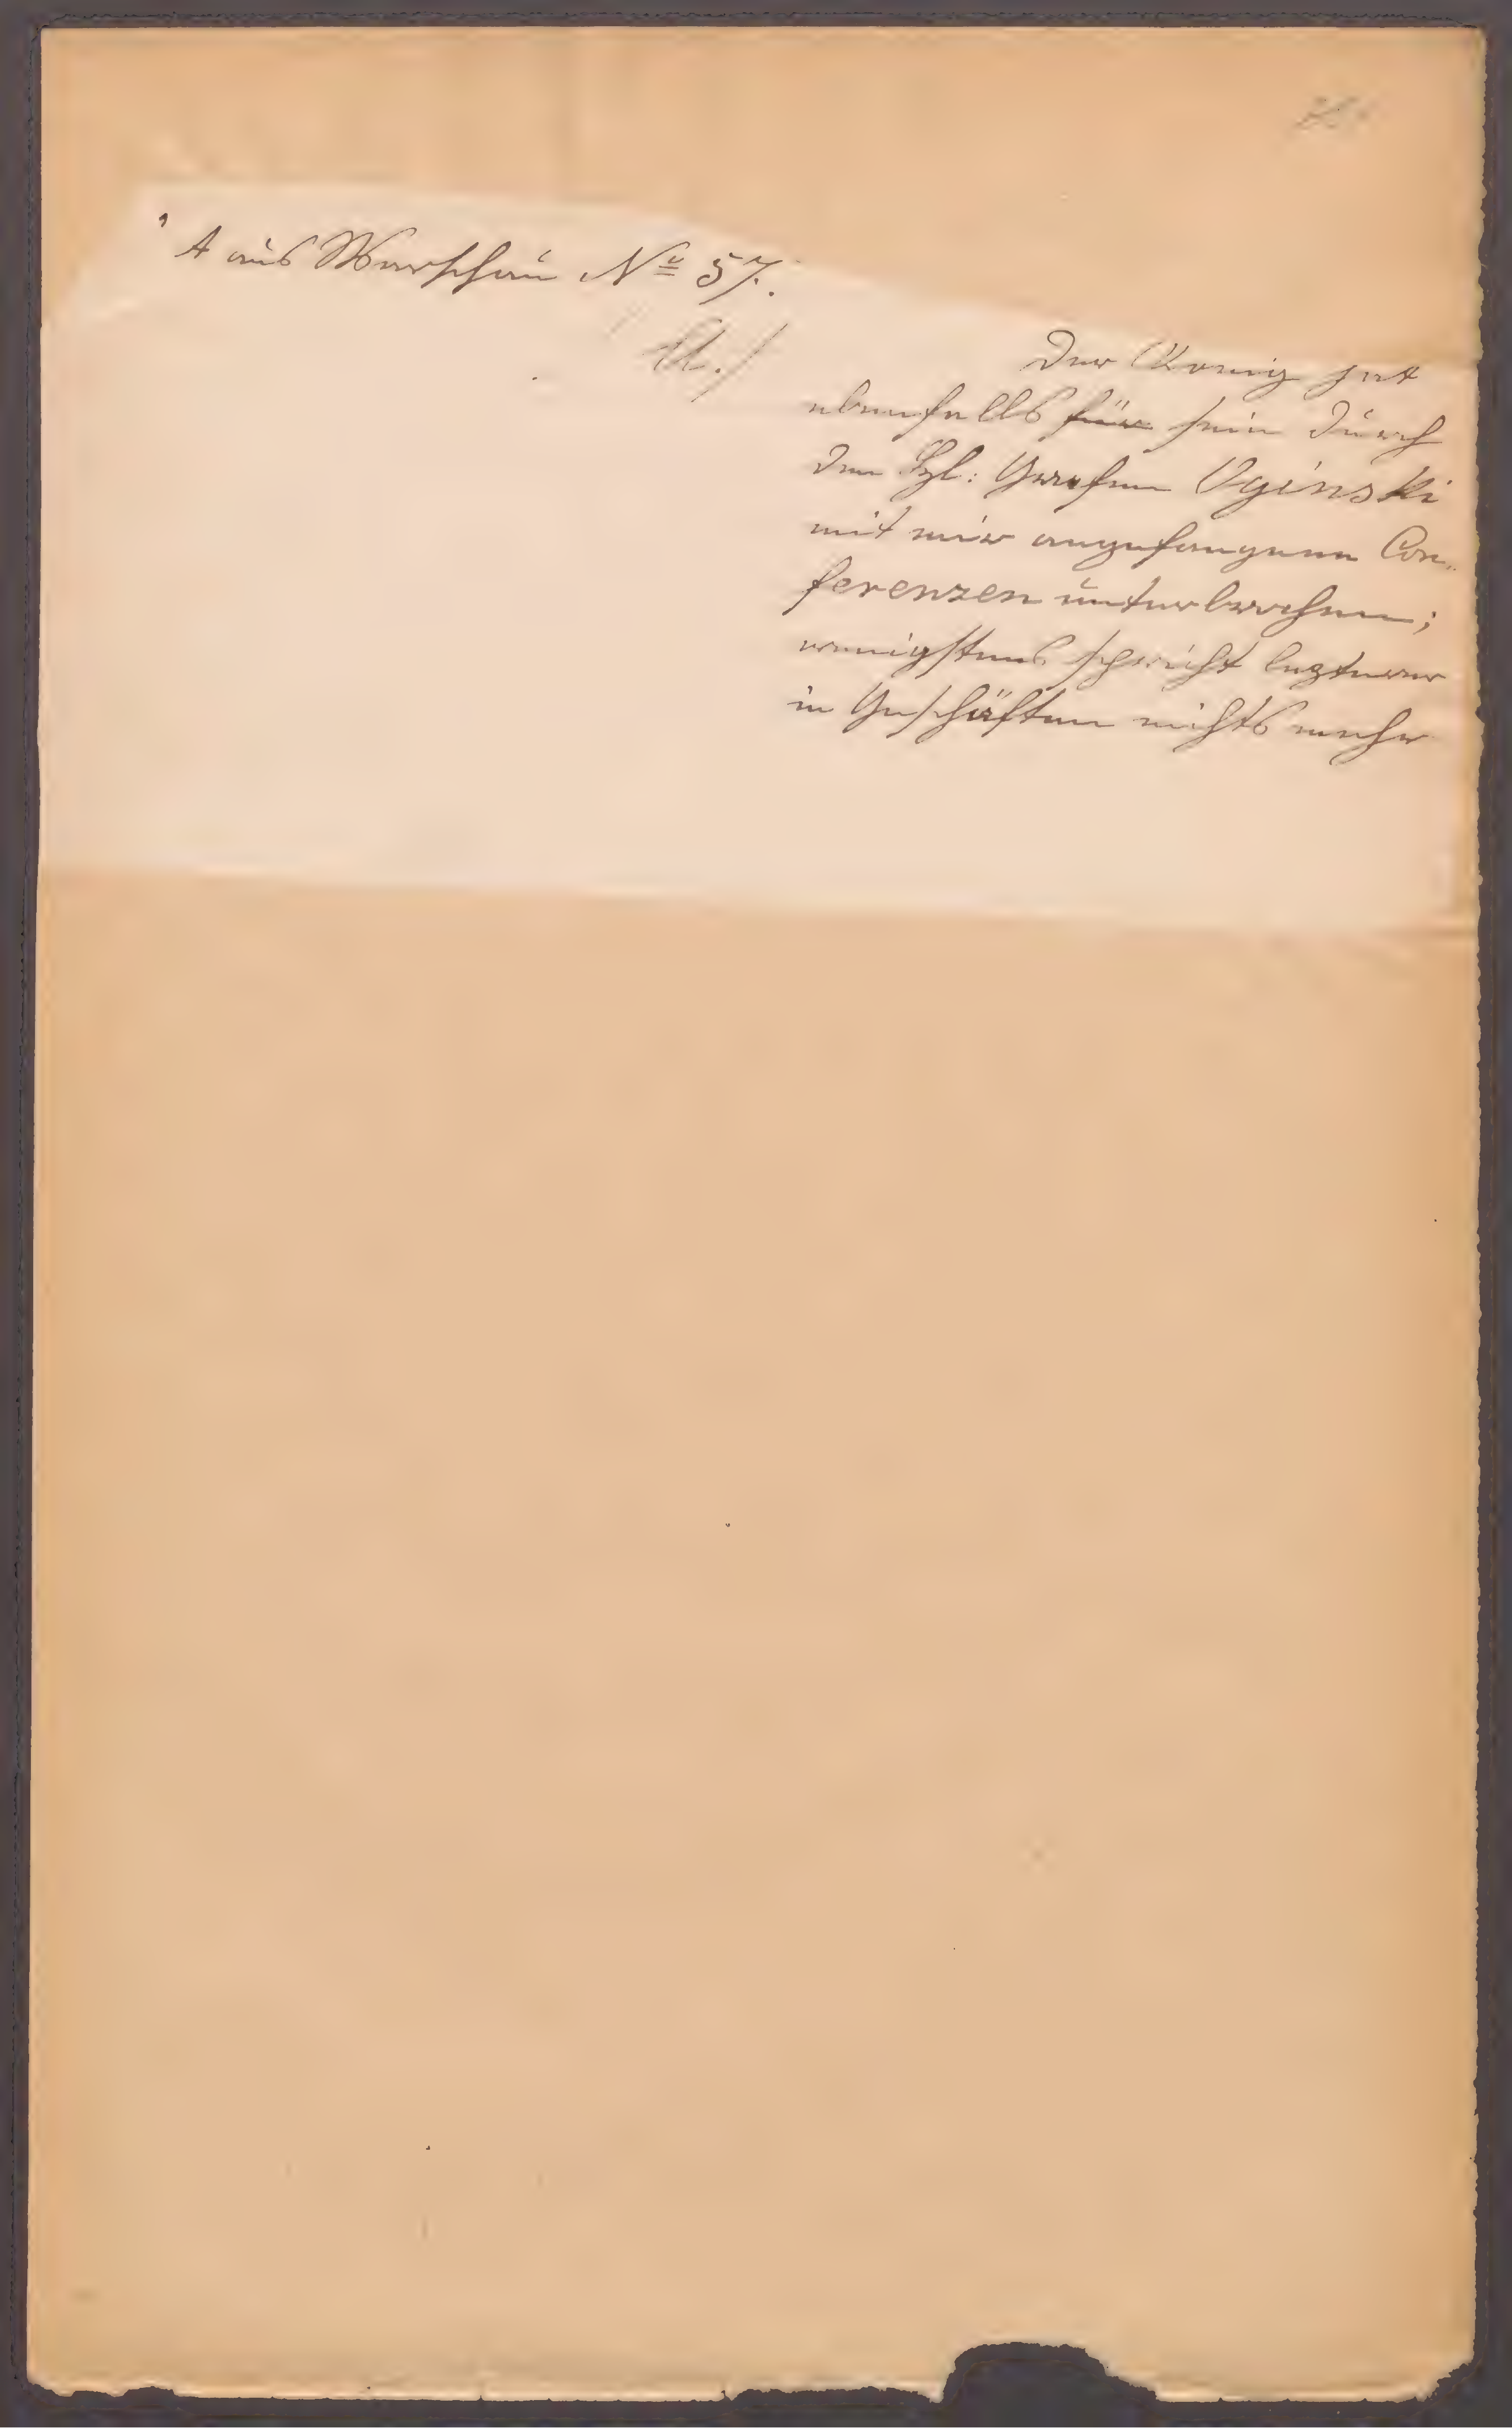 A aus Warschau No 57.
Der König hat
ebenfalls für sein durch
den Grafen Oginski
mit mir angefangenen Con-
ferenzen unterbrochen;
wenigstens spricht lezterer
in Geschäften nichts mehr